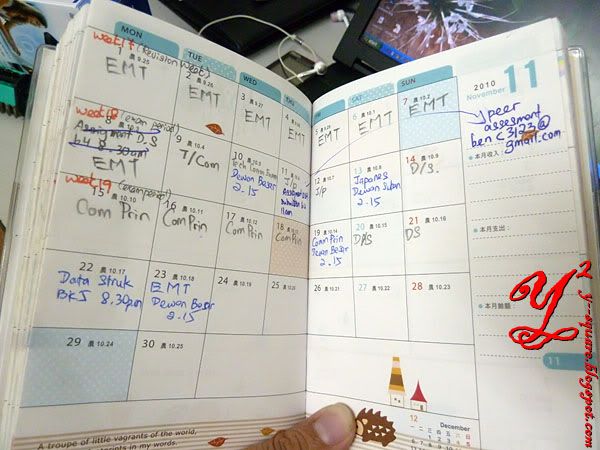 MON
TUE
WED
THU
FRI
SAT
SUN
2010
11
November
week17 (Revision Week)
1 農 9.25
EMT
2 農 9.26
EMT
3 農 9.27
EMT
4 農
EMT
5 農
EMT
6 農 10.1
EMT
7 農 10.2
EMT
peer
assesment
benC3123@
gmail.com
week18 (exam period)
8
Assignment D.S
8.30am
EMT
9 農 10.4
T/Com
10 農 10.5
Tech Comm Exam
Dewan Besar
2.15
11 農 10.6
J/P
11am
12 農 10.7
J/p
13 農 10.8
Japanes
Dewan
2.15
14 農 10.9
D/S.
本月收入:
week19 (exam period)
15 農 10.10
Com Prin
16 農 10.11
Com Prin
17 農 10.12
Com Prin
18 農 10.13
Com Prin
19 農 10.14
Comm Prin
Dewan Besar
2.15
20 農 10.15
D/S
21 農 10.16
DS
本月支出:
22 農 10.17
Data Struk
BKJ 8.30pm
23 農 10.18
EMT
Dewan Besar
2.15
24 農 10.19
25 農 10.20
26 農 10.21
27 農 10.22
28 農 10.23
本月餘額:
29 農 10.24
30 農 10.25
11
12 December
A troupe of little vagrants of the world,
footprints in my words.
Y2
y-square.blogspot.com